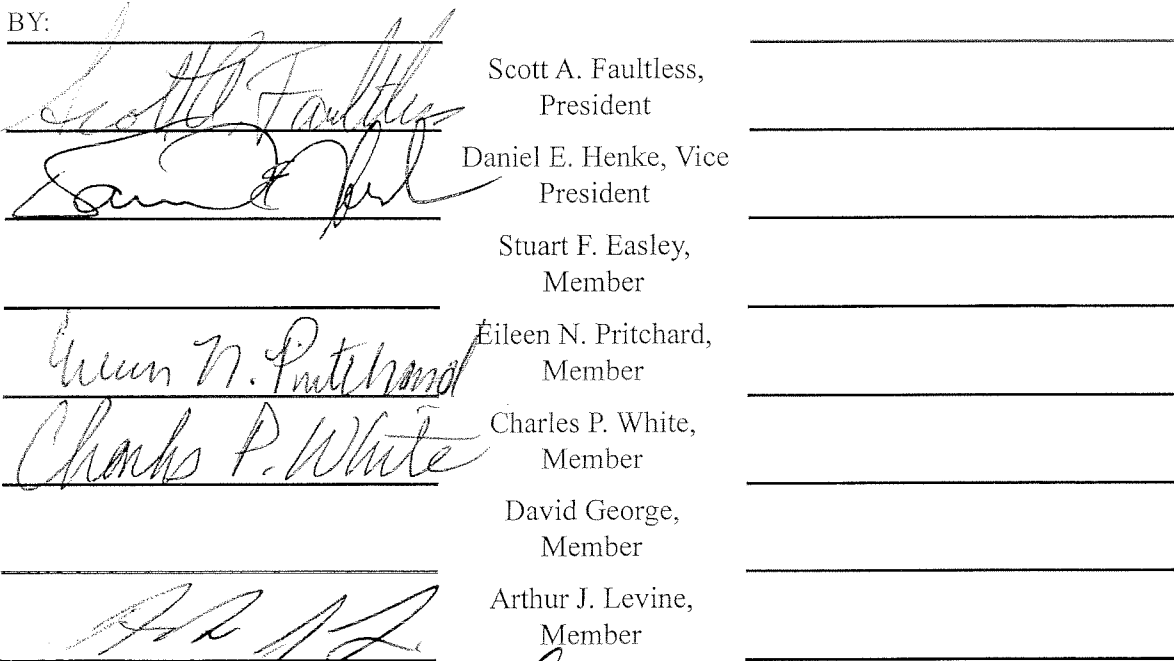 BY:
Scott A. Faultless
Scott A. Faultless,
President
Daniel E. Henke, Vice
President
Stuart F. Easley,
Member
Eileen N. Pritchard
Eileen N. Pritchard,
Member
Charles P. White
Charles P. White,
Member
David George,
Member
Arthur J. Levine,
Member